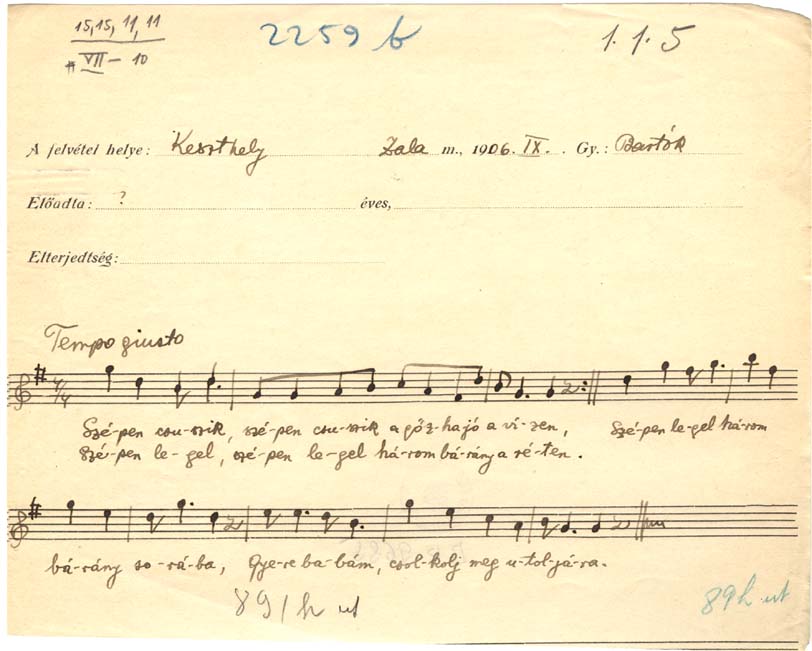 15, 15, 11, 11
VII – 10
2259 b
1. 1. 5
A felvétel helye: Keszthely Zala m., 1906. IX. . Gy.: Bartók
Előadta: ? éves,
Elterjedtség:
Tempo giusto
4/4
Szé-pen csu-szik, szé-pen csu-szik a gőz-hajó a vi-zen, Szé-pen le-gel három
Szé-pen le-gel, szé-pen le-gel há-rom bá-rány a ré-ten.
bá-rány so-rá-ba, Gye-re ba-bám, csol-kolj meg u-tol-já-ra.
89/h ut
89h ut